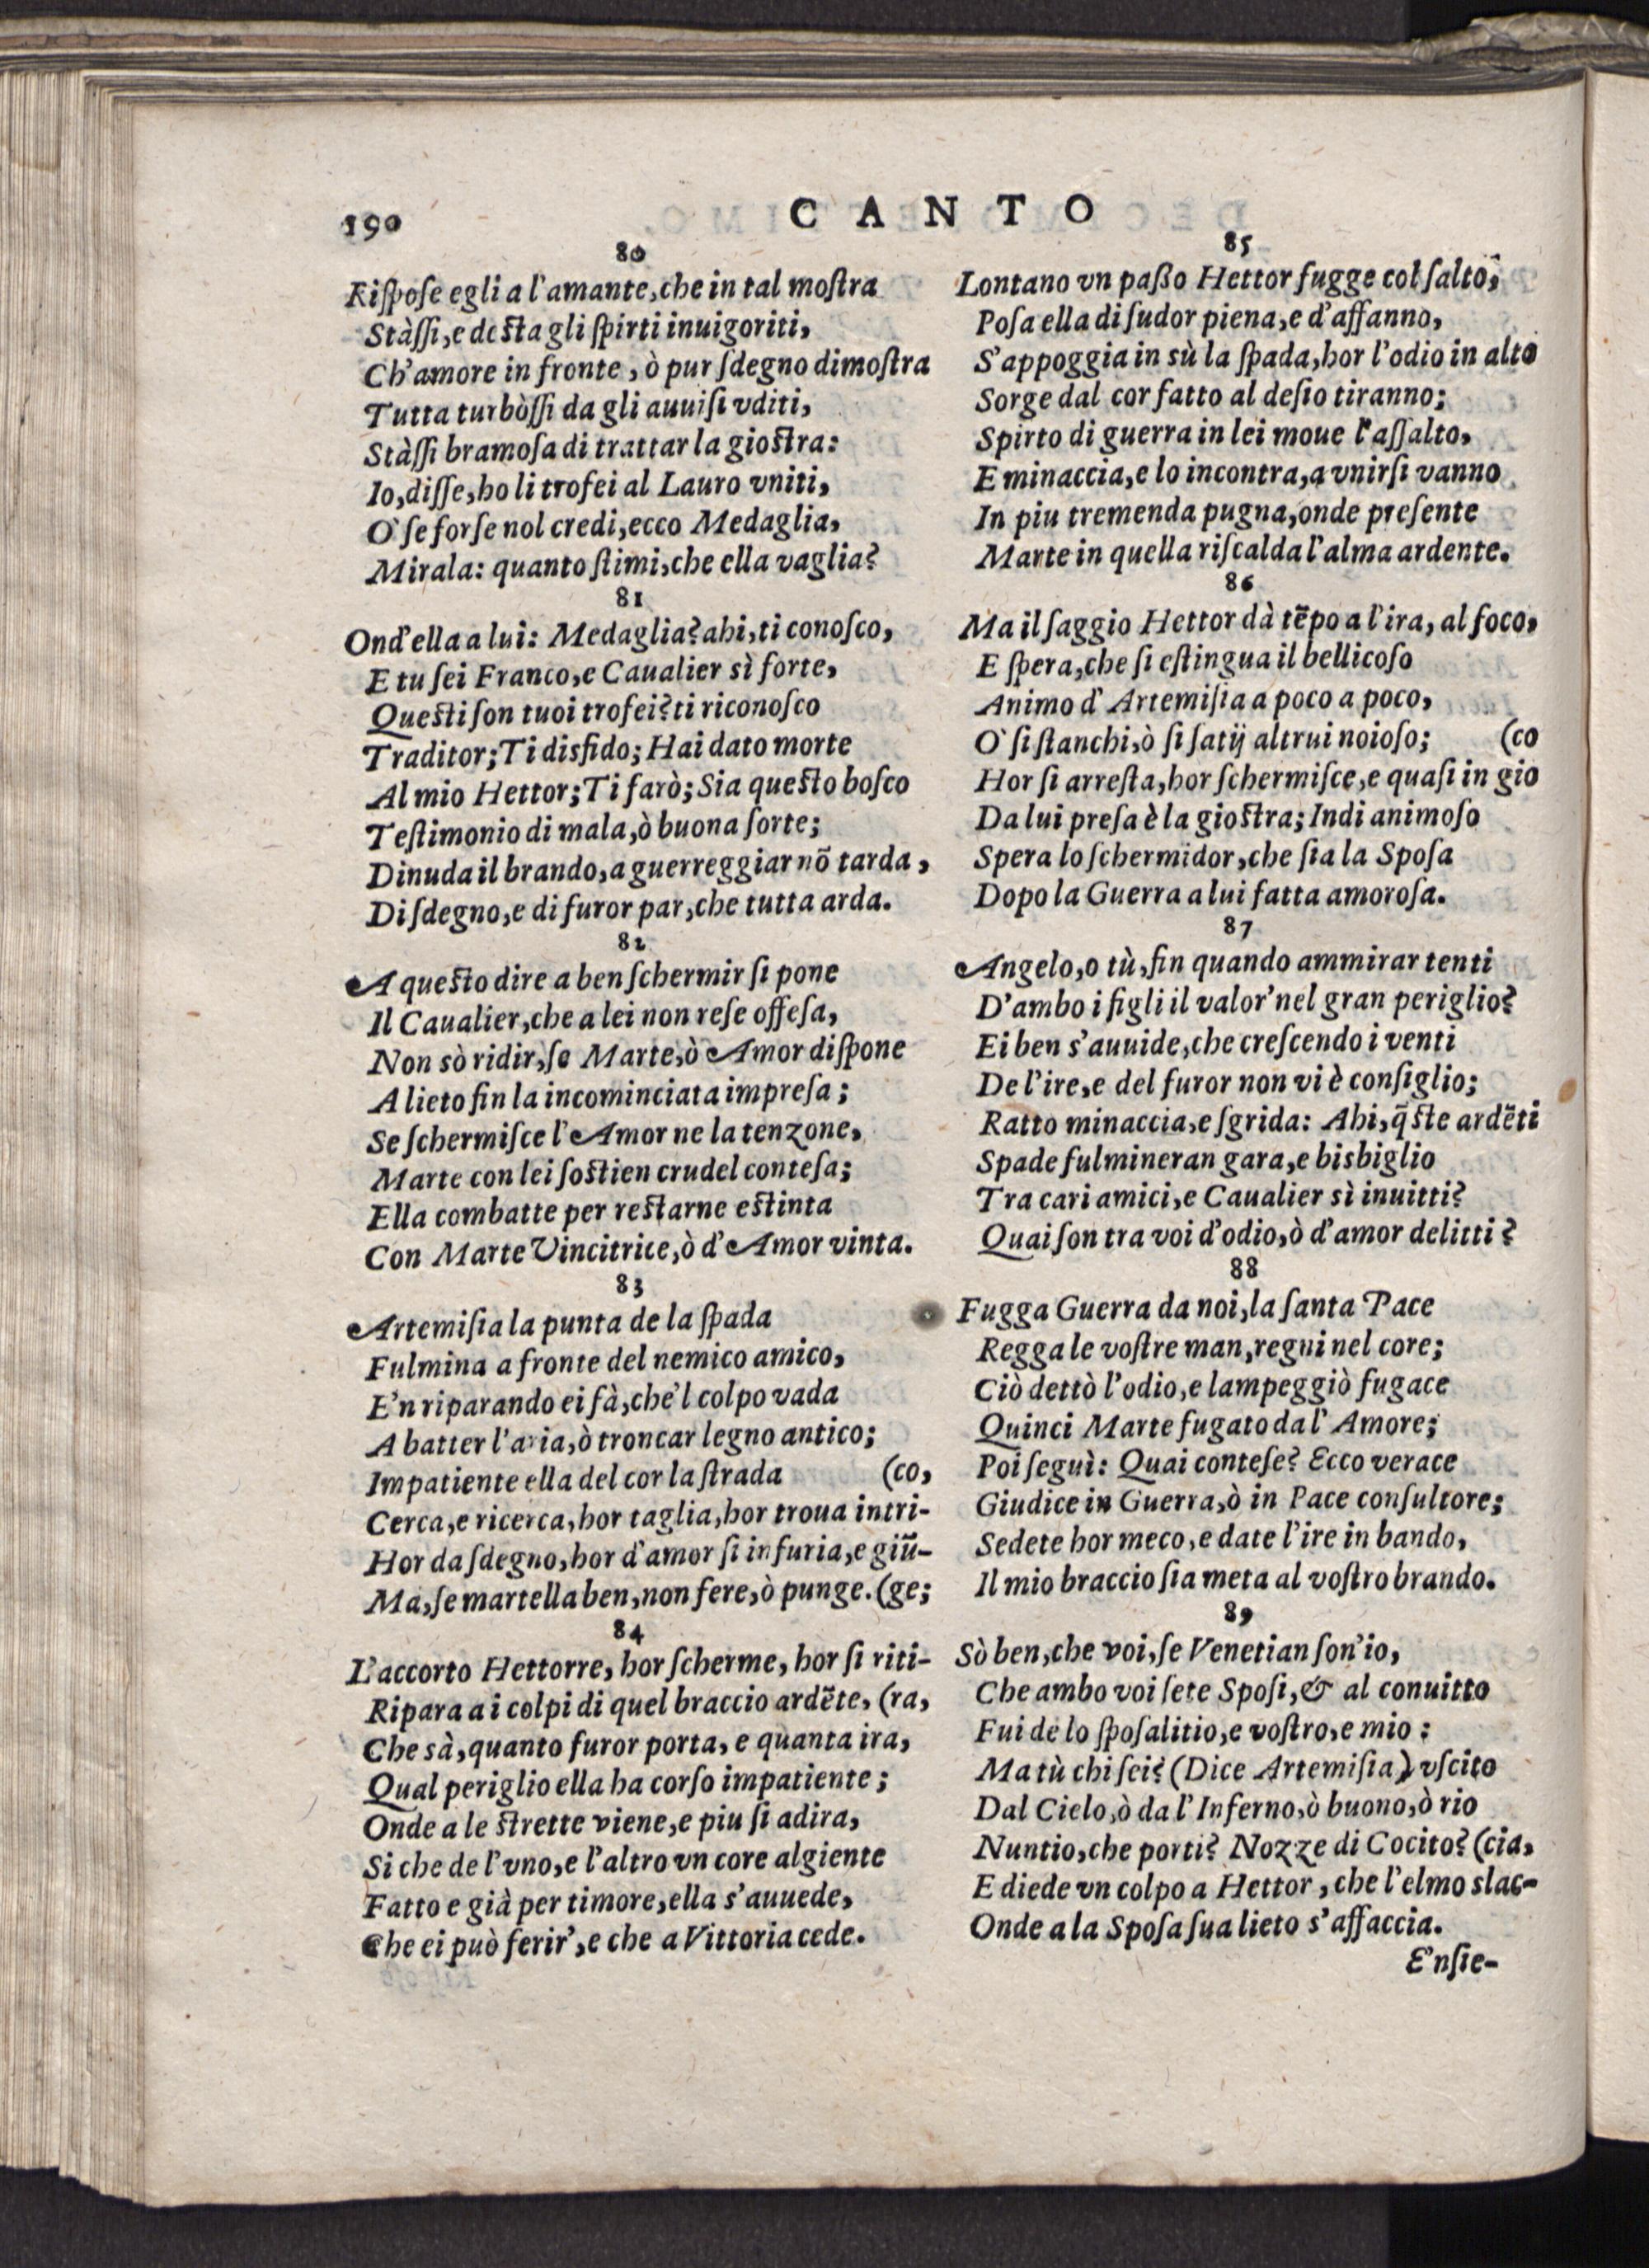 190
CANTO
80
Riſpoſe egli a l'amante, che in tal moſtra
Stàſſi, e deſta gli ſpirti inuigoriti,
Ch'amore in fronte, ò pur ſdegno dimoſtra
Tutta turbòſſi da gli auuiſi vditi,
Stàſſi bramoſa di trattar la gioſtra:
Io, diſſe, ho li trofei al Lauro vniti,
O' ſe forſe nol credi, ecco Medaglia,
Mirala: quanto ſtimi, che ella vaglia?
81
Ond'ella a lui: Medaglia? ahi, ti conoſco,
E tu ſei Franco, e Caualier sì forte,
Queſti ſon tuoi trofei? ti riconoſco
Traditor; Ti disfido; Hai dato morte
Al mio Hettor; Ti farò; Sia queſto boſco
Teſtimonio di mala, ò buona ſorte;
Dinuda il brando, a guerreggiar nõ tarda,
Di ſdegno, e di furor par, che tutta arda.
82
A queſto dire a ben ſchermir ſi pone
Il Caualier, che a lei non reſe offeſa,
Non sò ridir, ſe Marte, ò Amor diſpone
A lieto fin la incominciata impreſa;
Se ſchermiſce l'Amor ne la tenzone,
Marte con lei ſoſtien crudel conteſa;
Ella combatte per reſtarne eſtinta
Con Marte Vincitrice, ò d'Amor vinta.
83
Artemiſia la punta de la ſpada
Fulmina a fronte del nemico amico,
E'n riparando ei fà, che'l colpo vada
A batter l'aria, ò troncar legno antico;
Impatiente ella del cor la ſtrada (co,
Cerca, e ricerca, hor taglia, hor troua intri-
Hor da ſdegno, hor d'amor ſi infuria, e giũ-
Ma, ſe martella ben, non fere, ò punge. (ge;
84
L'accorto Hettorre, hor ſcherme, hor ſi riti-
Ripara a i colpi di quel braccio ardẽte, (ra,
Che sà, quanto furor porta, e quanta ira,
Qual periglio ella ha corſo impatiente;
Onde a le ſtrette viene, e piu ſi adira,
Si che de l'vno, e l'altro vn core algiente
Fatto e già per timore, ella s'auuede,
Che ei può ferir', e che a Vittoria cede.
85
Lontano vn paßo Hettor fugge col ſalto,
Poſa ella di ſudor piena, e d'affanno,
S'appoggia in sù la ſpada, hor l'odio in alto
Sorge dal cor fatto al deſio tiranno;
Spirto di guerra in lei moue l'aſſalto,
E minaccia, e lo incontra, a vnirſi vanno
In piu tremenda pugna, onde preſente
Marte in quella riſcalda l'alma ardente.
86
Ma il ſaggio Hettor dà tẽpo a l'ira, al foco,
E ſpera, che ſi eſtingua il bellicoſo
Animo d'Artemiſia a poco a poco,
O' ſi ſtanchi, ò ſi ſatij altrui noioſo; (co
Hor ſi arreſta, hor ſchermiſce, e quaſi in gio
Da lui preſa è la gioſtra; Indi animoſo
Spera lo ſchermidor, che ſia la Spoſa
Dopo la Guerra a lui fatta amoroſa.
87
Angelo, o tù, fin quando ammirar tenti
D'ambo i figli il valor' nel gran periglio?
Ei ben s'auuide, che creſcendo i venti
De l'ire, e del furor non vi è conſiglio;
Ratto minaccia, e ſgrida: Ahi, q̃ſte ardẽti
Spade fulmineran gara, e bisbiglio
Tra cari amici, e Caualier sì inuitti?
Quai ſon tra voi d'odio, ò d'amor delitti?
88
Fugga Guerra da noi, la ſanta Pace
Regga le voſtre man, regni nel core;
Ciò dettò l'odio, e lampeggiò fugace
Quinci Marte fugato da l'Amore;
Poi ſeguì: Quai conteſe? Ecco verace
Giudice in Guerra, ò in Pace conſultore;
Sedete hor meco, e date l'ire in bando,
Il mio braccio ſia meta al voſtro brando.
89
Sò ben, che voi, ſe Venetian ſon'io,
Che ambo voi ſete Spoſi, & al conuitto
Fui de lo ſpoſalitio, e voſtro, e mio:
Ma tù chi ſei? (Dice Artemiſia) vſcito
Dal Cielo, ò da l'Inferno, ò buono, ò rio
Nuntio, che porti? Nozze di Cocito? (cia,
E diede vn colpo a Hettor, che l'elmo slac-
Onde a la Spoſa ſua lieto s'affaccia.
E'nſie-